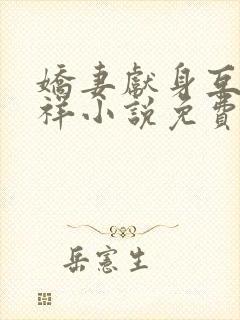 嬌妻獻身互
祥小說免費
岳憲生